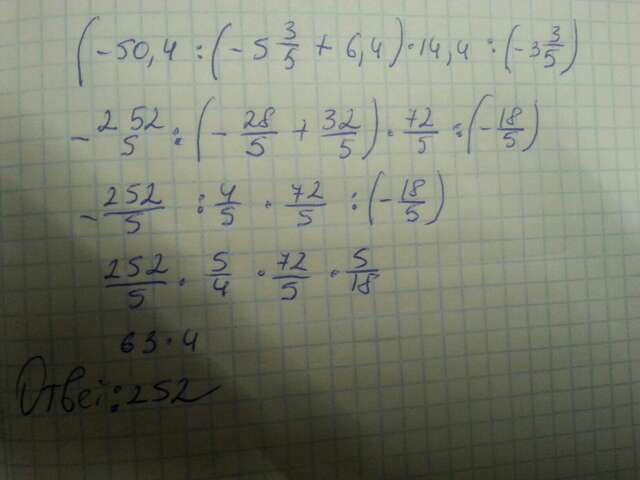 (-50,4 : (-5 3/5 + 6,4) · 14,4 : (-3 3/5)
- 252/5 : (- 28/5 + 32/5) · 72/5 : (- 18/5)
- 252/5 : 4/5 · 72/5 : (- 18/5)
252/5 · 5/4 · 72/5 · 5/18
63 · 4
Ответ: 252